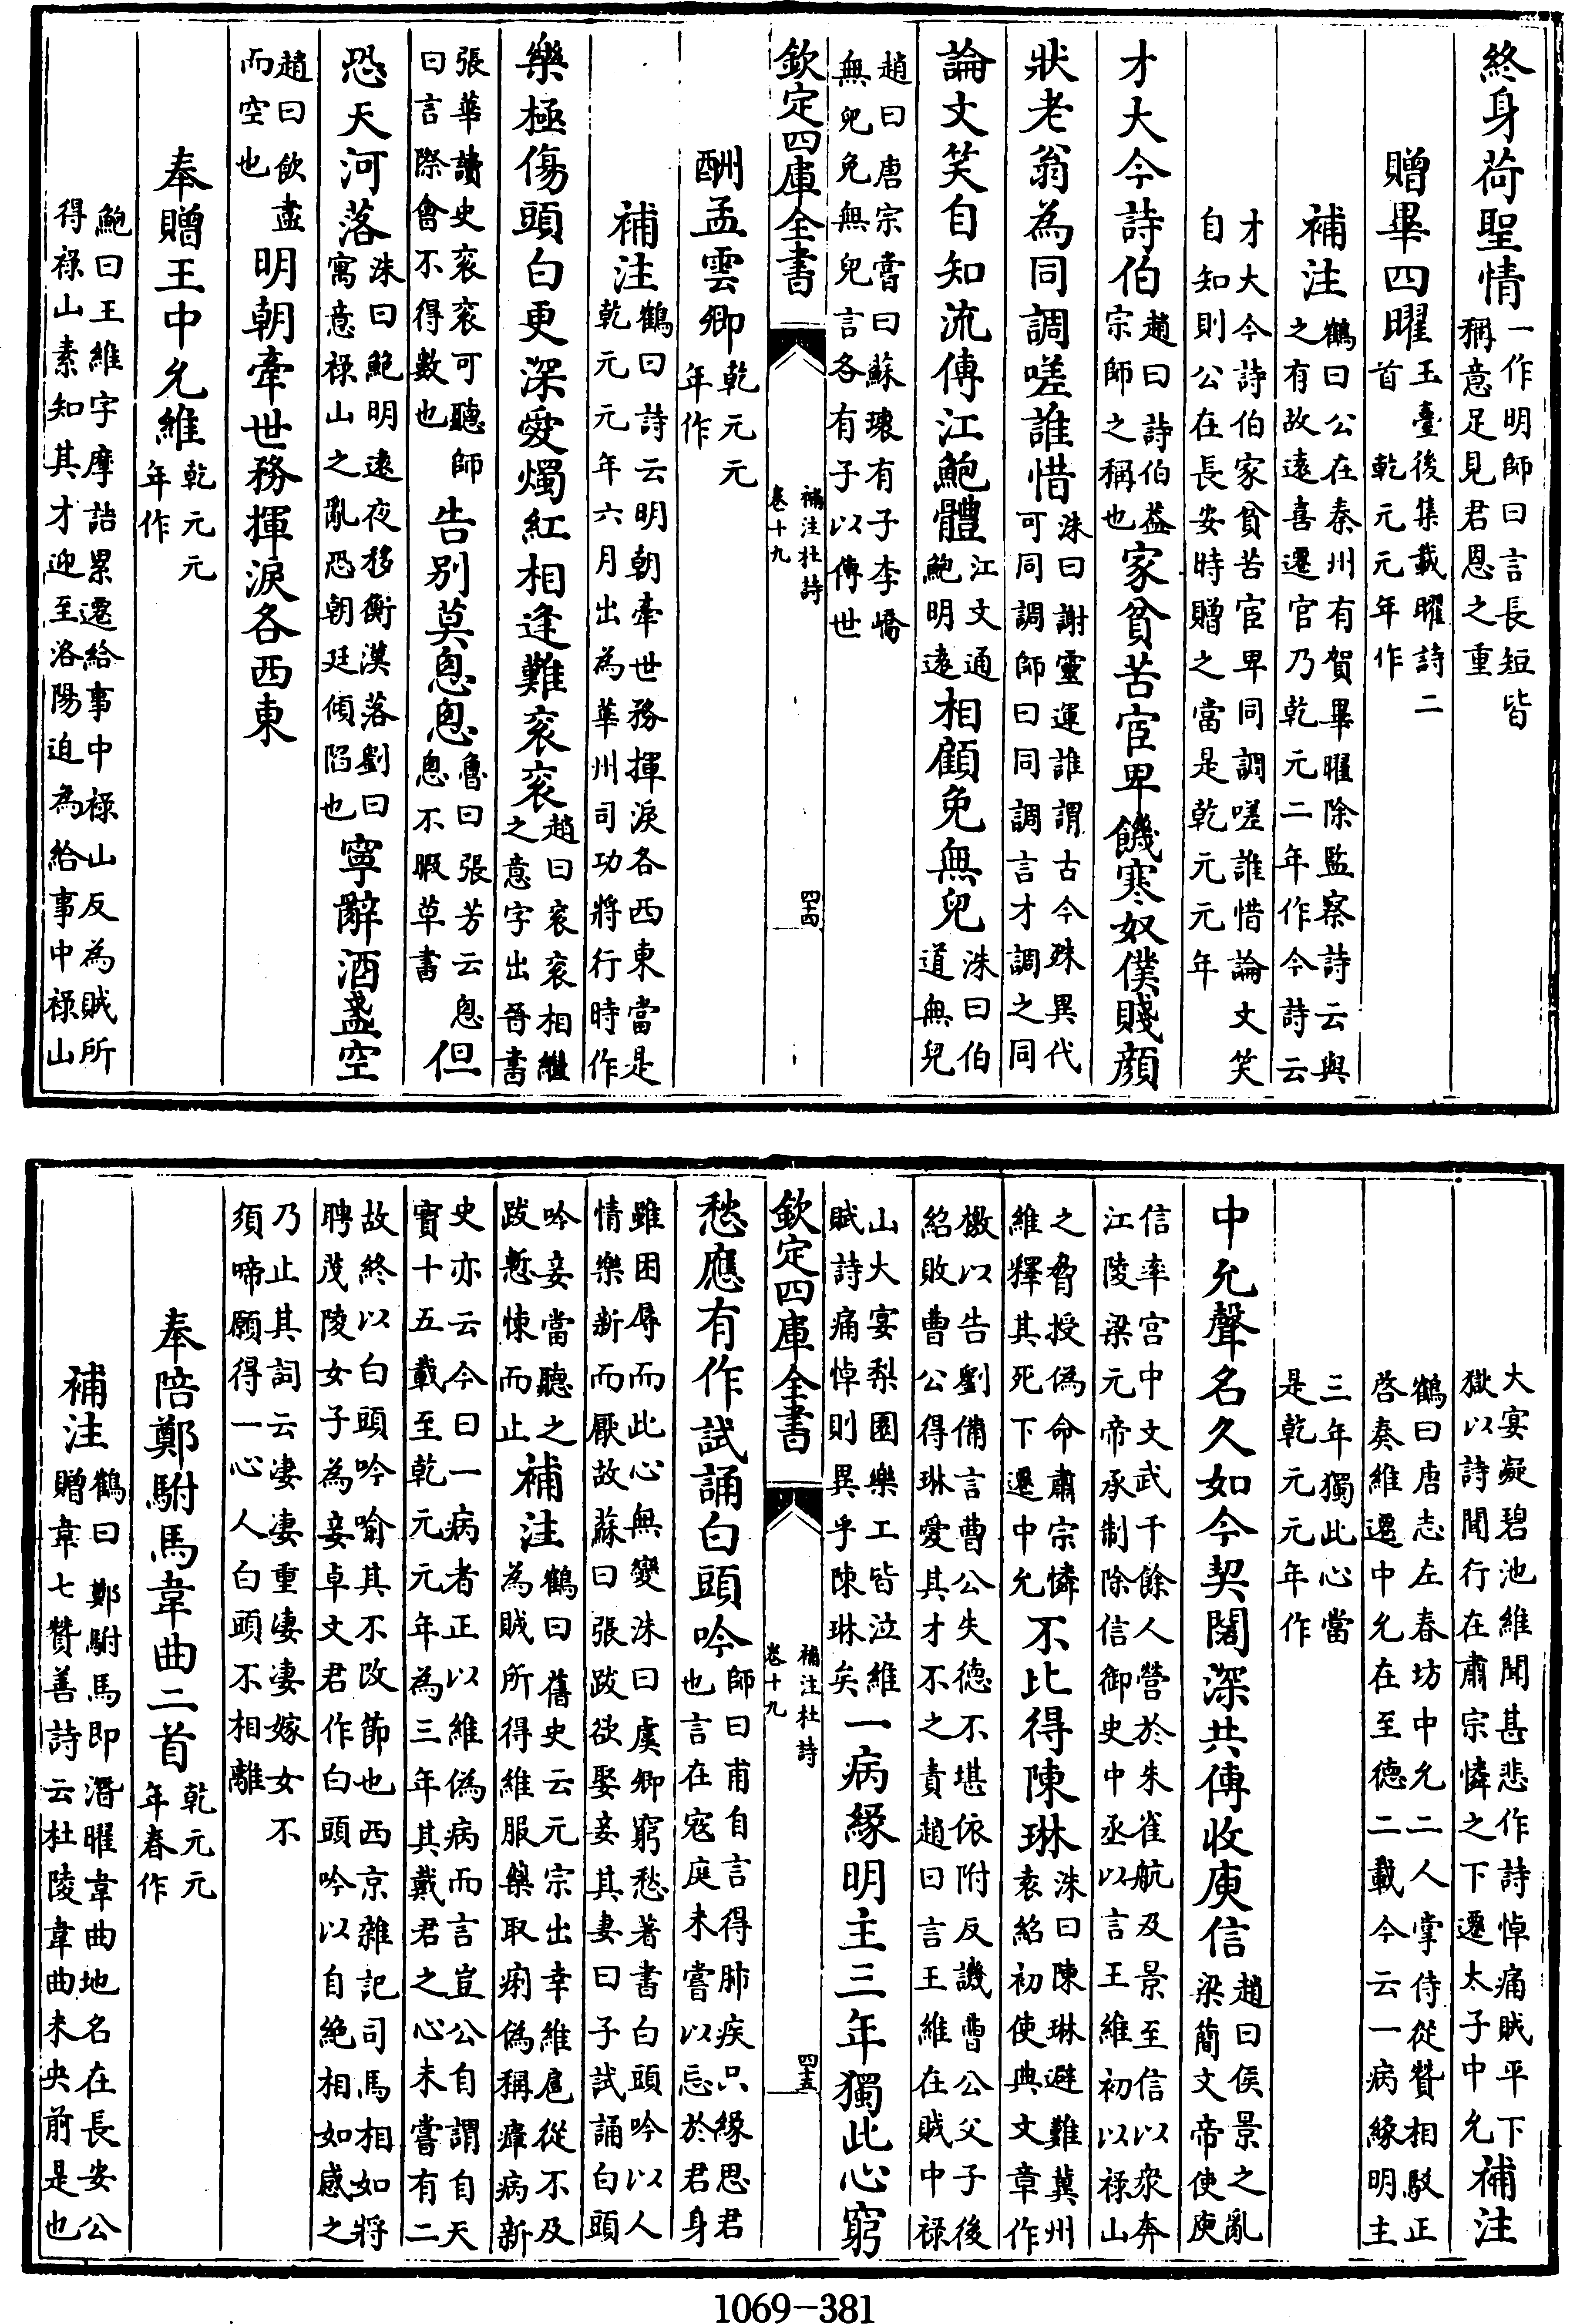 終身荷聖情一作明師曰言長短皆稱意足見君恩之重
贈畢四曜玉臺後集載曜詩二首 乾元元年作
補注鶴曰公在秦州有賀畢曜除監察詩云與之有故遠喜遷官乃乾元二年作今詩云
才大今詩伯家貧苦宦卑同調嗟誰惜論文笑自知則公在長安時贈之當是乾元元年
才大今詩伯趙曰詩伯盖宗師之稱也家貧苦宦卑饑寒奴僕賤顔
狀老翁為同調嗟誰惜洙曰謝靈運誰謂古今殊異代可同調師曰同調言才調之同
論文笑自知流傳江鮑體江文通鮑明遠相顧免無兒洙曰伯道無兒
趙曰唐宗嘗曰蘇瓌有子李嶠無兒免無兒言各有子以傳世
欽定四庫全書 補注杜詩卷十九 四十四
酬孟雲卿乾元元年作
補注鶴曰詩云明朝牽世務揮淚各西東當是乾元元年六月出為華州司功將行時作
樂極傷頭白更深愛燭紅相逢難衮衮趙曰衮衮相繼之意字出晉書
張華讀史衮衮可聽師曰言際會不得數也告別莫怱怱魯曰張芳云怱怱不暇草書但
恐天河落洙曰鮑明遠夜移衡漢落劉曰寓意禄山之亂恐朝廷傾陷也寧辭酒盞空
趙曰飲盡而空也明朝牽世務揮淚各西東
奉贈王中允維乾元元年作
鮑曰王維字摩詰累遷給事中禄山反為賊所得禄山素知其才迎至洛陽迫為給事中禄山
大宴凝碧池維聞甚悲作詩悼痛賊平下獄以詩聞行在肅宗憐之下遷太子中允補注
鶴曰唐志左春坊中允二人掌侍從贊相駁正啓奏維遷中允在至德二載今云一病緣明主
三年獨此心當是乾元元年作
中允聲名久如今契闊深共傳收庾信趙曰侯景之亂梁簡文帝使庾
信率宫中文武千餘人營於朱雀航及景至信以衆奔江陵梁元帝承制除信御史中丞以言王維初以禄山
之脅授偽命肅宗憐維釋其死下遷中允不比得陳琳洙曰陳琳避難冀州袁紹初使典文章作
檄以告劉備言曹公失德不堪依附反譏曹公父子後紹敗曹公得琳愛其才不之責趙曰言王維在賊中禄
山大宴梨園樂工皆泣維賦詩痛悼則異乎陳琳矣一病緣明主三年獨此心窮
欽定四庫全書 補注杜詩卷十九 四十五
愁應有作試誦白頭吟師曰甫自言得肺疾只緣思君也言在寇庭未嘗以忘於君身
雖困辱而此心無變洙曰虞卿窮愁著書白頭吟以人情樂新而厭故蘇曰張跋欲娶妾其妻曰子試誦白頭
吟妾當聽之跋慙悚而止補注鶴曰舊史云元宗出幸維扈從不及為賊所得維服藥取痢偽稱瘖病新
史亦云今曰一病者正以維偽病而言豈公自謂自天寳十五載至乾元元年為三年其戴君之心未嘗有二
故終以白頭吟喻其不改節也西京雜記司馬相如將聘茂陵女子為妾卓文君作白頭吟以自絶相如感之
乃止其詞云凄凄重凄凄嫁女不須啼願得一心人白頭不相離
奉陪鄭駙馬韋曲二首乾元元年春作
補注鶴曰鄭駙馬即潛曜韋曲地名在長安公贈韋七贊善詩云杜陵韋曲未央前是也
1069-381